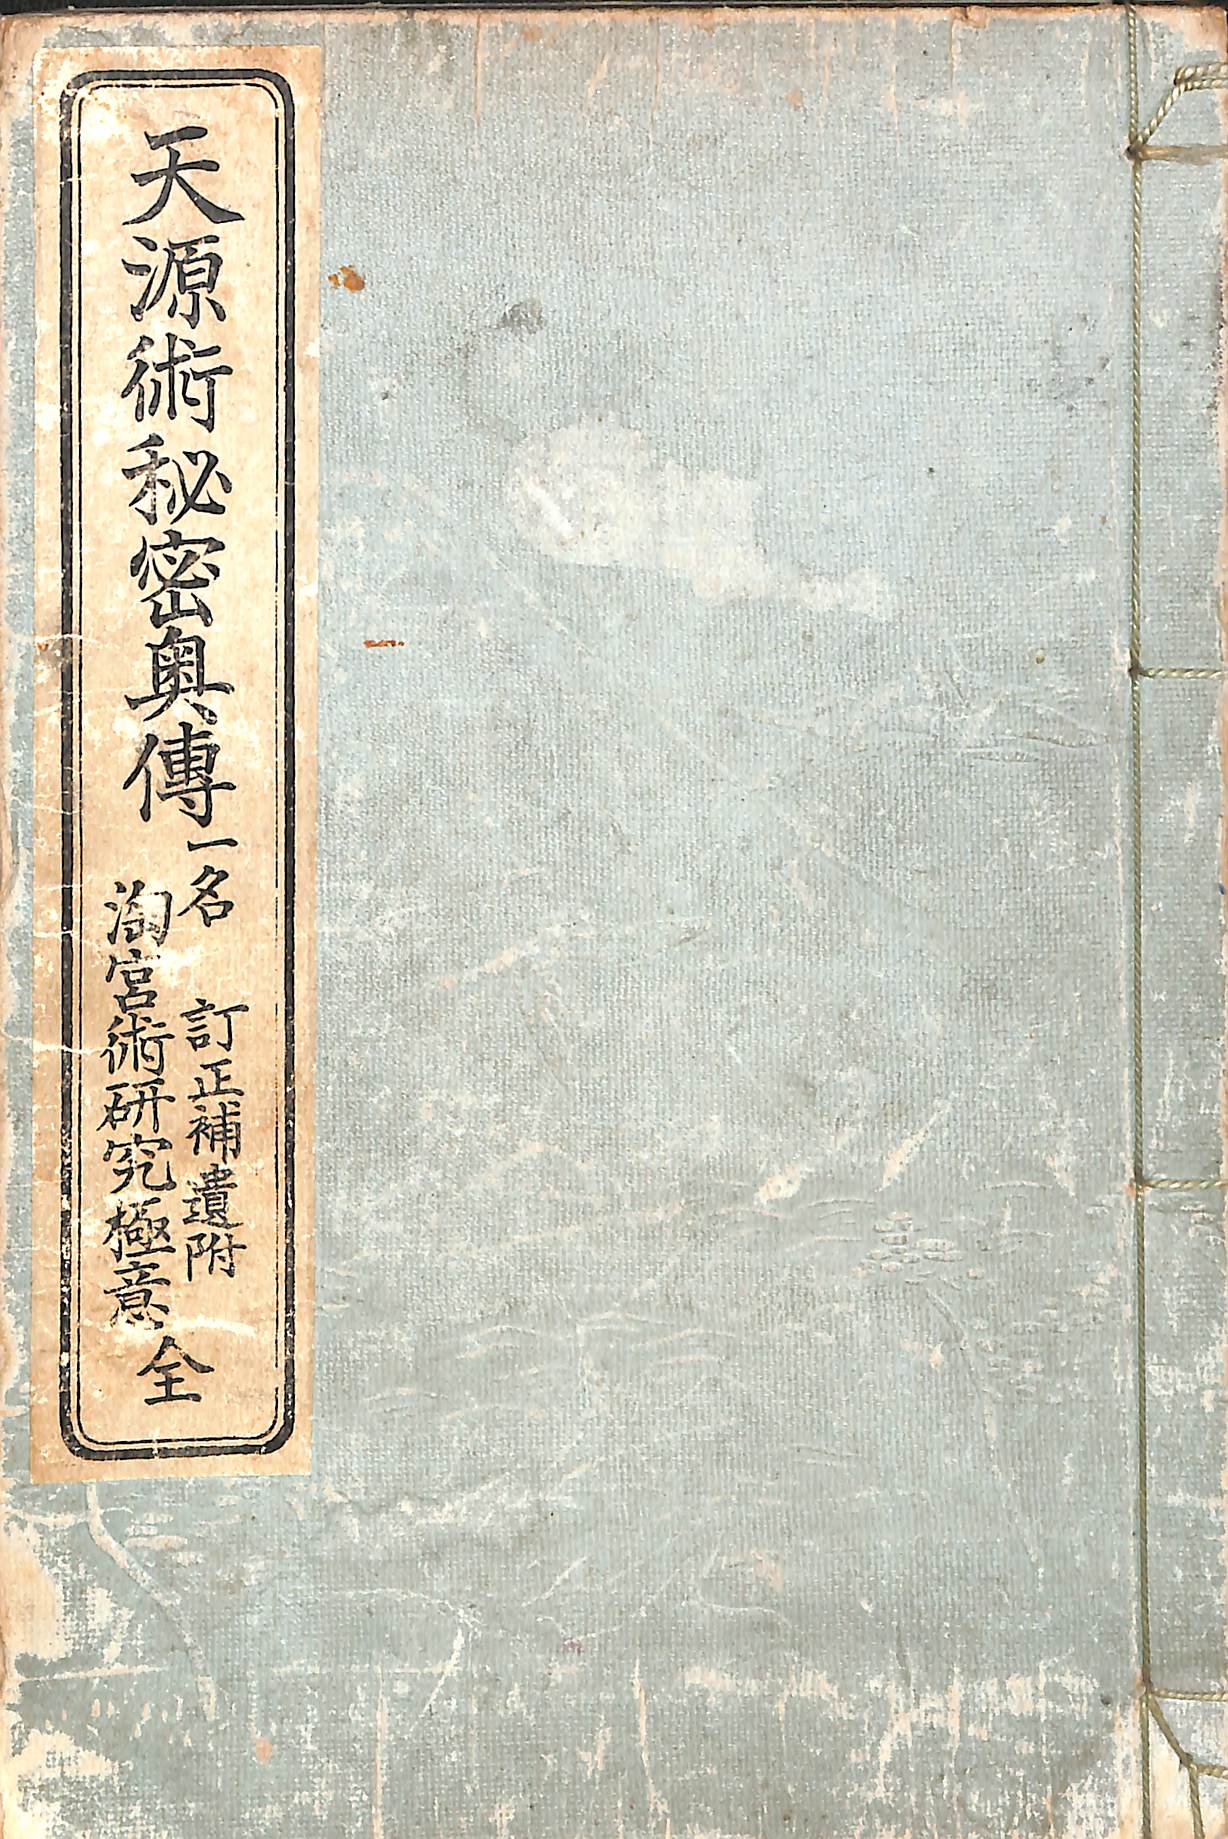 天源術秘密奥傳
一名
訂正補遺附
淘宮術研究極意
全